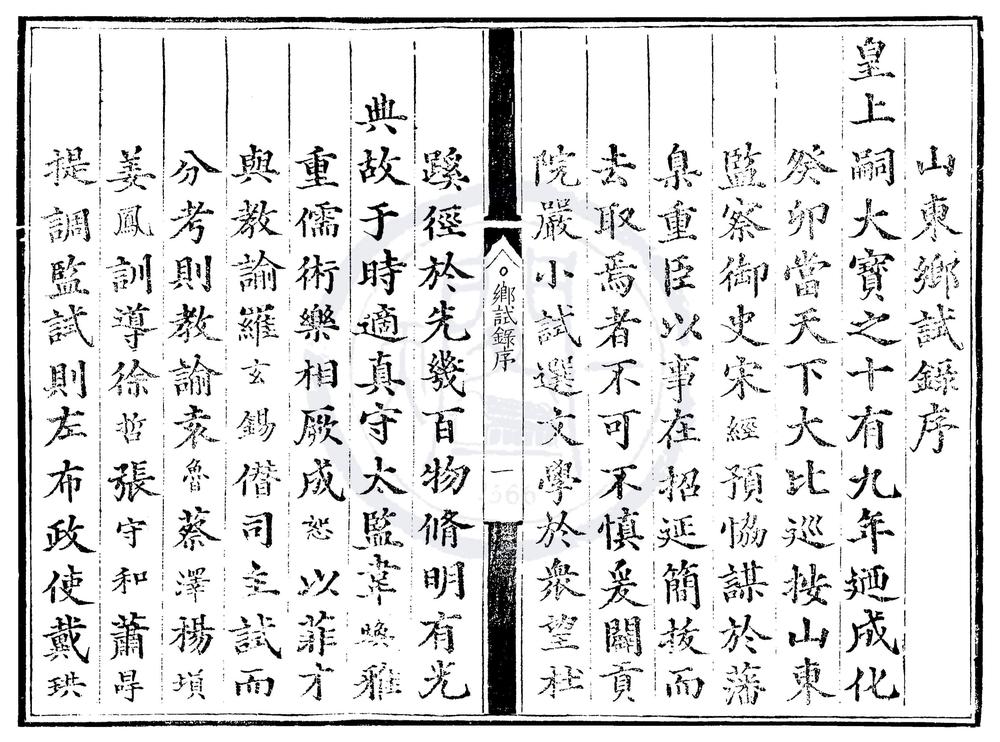 山東鄉試錄序
皇上嗣大寶之十有九年廼成化
癸卯當天下大比巡按山東
監察御史宋經預恊謀於藩
臬重臣以事在招延簡拔而
去取焉者不可不慎爰闢貢
院嚴小試選文學於衆望杜
鄉試錄序
一
蹊徑於先幾百物脩明有光
典故于時適真守太監韋煥雅
重儒術樂相厥成恕以菲才
與教諭羅玄錫僭司主試而
分考則教諭袁魯蔡澤楊塤
姜鳳訓導徐哲張守和蕭㝵
提調監試則左布政使戴珙